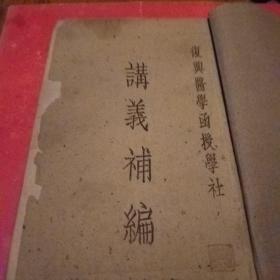 復興醫學函授學社
講義補編